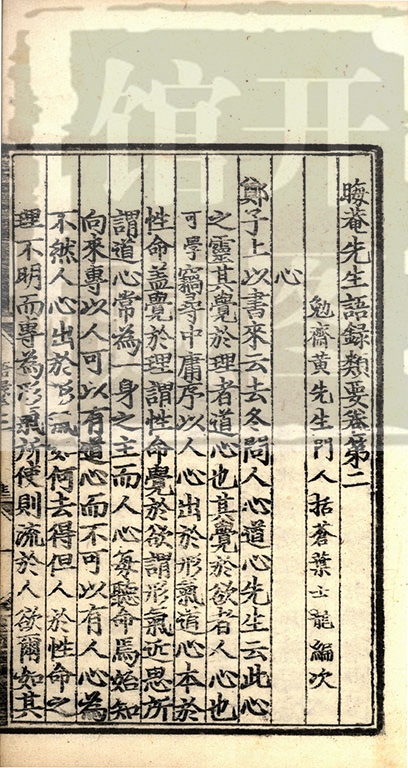 晦菴先生語録類要卷第二
勉齋黄先生門人括蒼葉士龍編次
心
鄭子上以書來云去冬問人心道心先生云此心
之靈其覺於理者道心也其覺於欲者人心也
可學竊尋中庸序以人心出於形氣道心本於
性命蓋覺於理謂性命覺於欲謂形氣近思所
謂道心常為一身之主而人心每聽命焉始知
向來專以人可以有道心而不可以有人心為
不然人心出於形氣如何去得但人於性命之
理不明而專為形氣所使則流於人欲爾如其
開
館